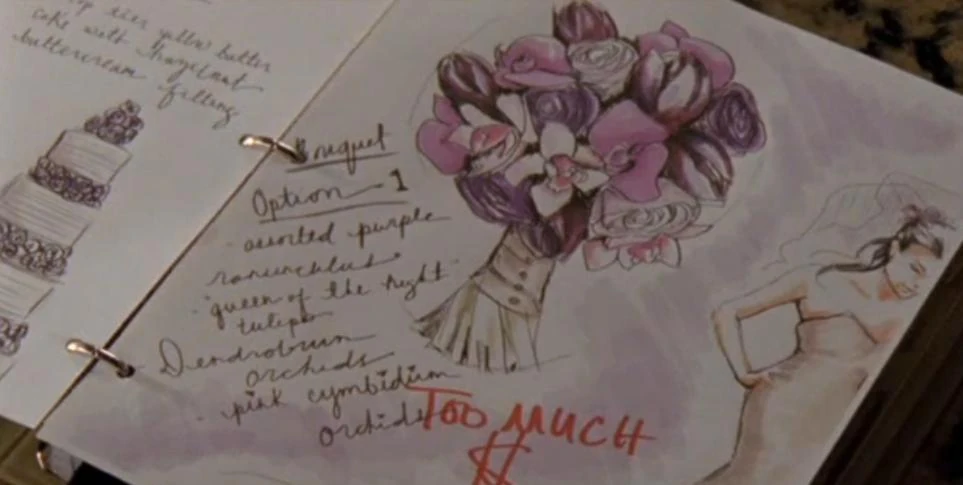 top tier yellow butter
cake with Hazelnut
buttercream filling
Bouquet
Option 1
- assorted purple
ranunculus
"queen of the night"
tulips
Dendrobium
orchids
- pink cymbidium
orchids
TOO MUCH
$